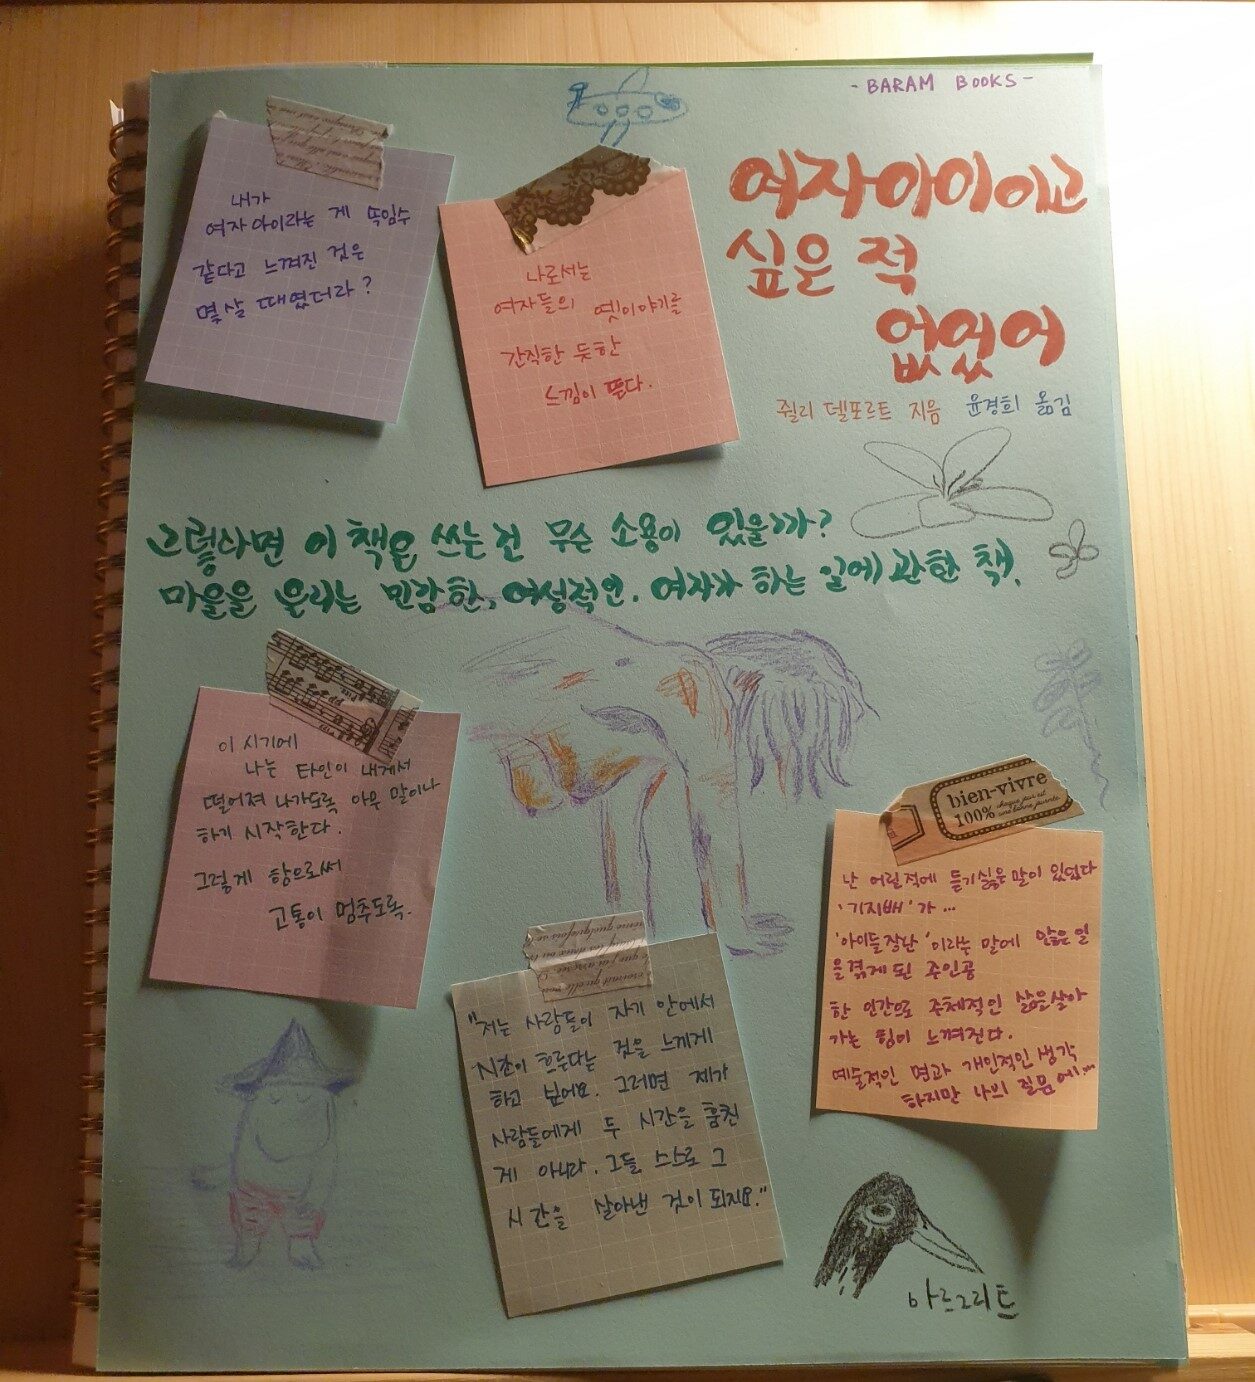 - BARAM BOOKS -
여자아이이고
싶은 적
없었어
쥘리 델포르트 지음 윤경희 옮김
내가
여자아이라는 게 속임수
같다고 느껴진 것은
몇살 때였더라?
나로서는
여자들의 옛이야기를
간직한 듯한
느낌이 든다.
그렇다면 이 책을 쓰는 건 무슨 소용이 있을까?
마음을 울리는 민감한, 여성적인. 여자가 하는 일에 관한 책.
이 시기에
나는 타인이 내게서
떨어져 나가도록 아무 말이나
하기 시작한다.
그렇게 함으로써
고통이 멈추도록.
bien-vivre
100%
난 어릴적에 듣기싫은 말이 있었다
'기지배'가...
'아이들장난'이라는 말에 많은 일
을 겪게 된 주인공
한 인간으로 주체적인 삶을 살아
가는 힘이 느껴진다.
예술적인 면과 개인적인 생각
하지만 나의 질문에...
"저는 사람들이 자기 안에서
시간이 흐른다는 것을 느끼게
하고 싶어요. 그러면 제가
사람들에게 두 시간을 훔친
게 아니라. 그들 스스로 그
시간을 살아낸 것이 되지요."
마르그리트